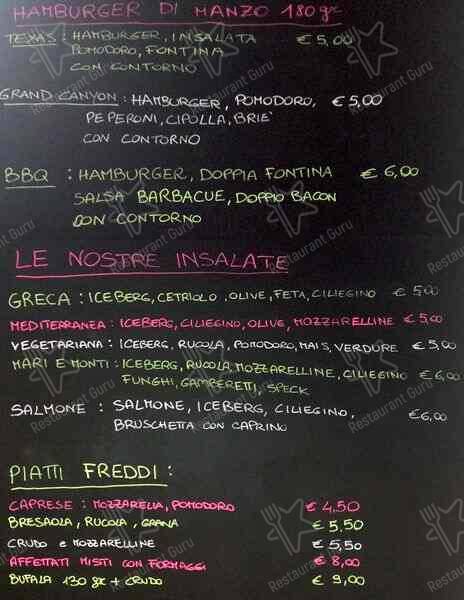 HAMBURGER DI MANZO 180gr
TEXAS: HAMBURGER, INSALATA € 5,00
POMODORO, FONTINA
CON CONTORNO
GRAND CANYON: HAMBURGER, POMODORO, € 5,00
PEPERONI, CIPOLLA, BRIE'
CON CONTORNO
BBQ : HAMBURGER, DOPPIA FONTINA € 6,00
SALSA BARBACUE, DOPPIO BACON
CON CONTORNO
LE NOSTRE INSALATE
GRECA : ICEBERG, CETRIOLO, OLIVE, FETA, CILIEGINO € 5,00
MEDITERRANEA : ICEBERG, CILIEGINO, OLIVE, MOZZARELLINE € 5,00
VEGETARIANA : ICEBERG, RUCOLA, POMODORO, MAIS, VERDURE € 5,00
MARI E MONTI : ICEBERG, RUCOLA, MOZZARELLINE, CILIEGINO € 6,00
FUNGHI, GAMBERETTI, SPECK
SALMONE : SALMONE, ICEBERG, CILIEGINO, € 6,00
BRUSCHETTA CON CAPRINO
PIATTI FREDDI :
CAPRESE : MOZZARELLA, POMODORO € 4,50
BRESAOLA, RUCOLA, GRANA € 5,50
CRUDO e MOZZARELLINE € 5,50
AFFETTATI MISTI CON FORMAGGI € 8,00
BUFALA 130 gr + CRUDO € 9,00
Restaurant Guru